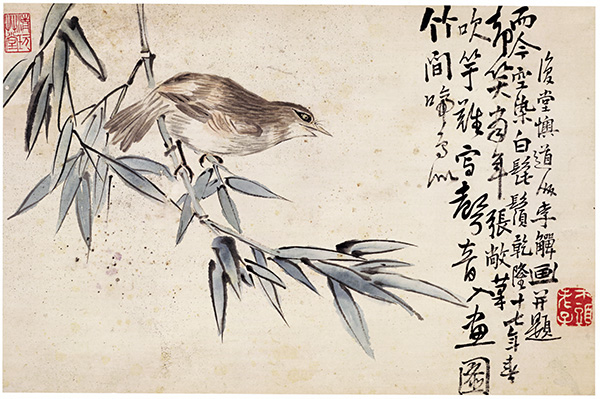 竹間啼鳥似
吹竽難寫聲音入畫圖
却笑當年張敞筆
而今空染白髭鬚乾隆十七年春
復堂懊道人李鱓画并題